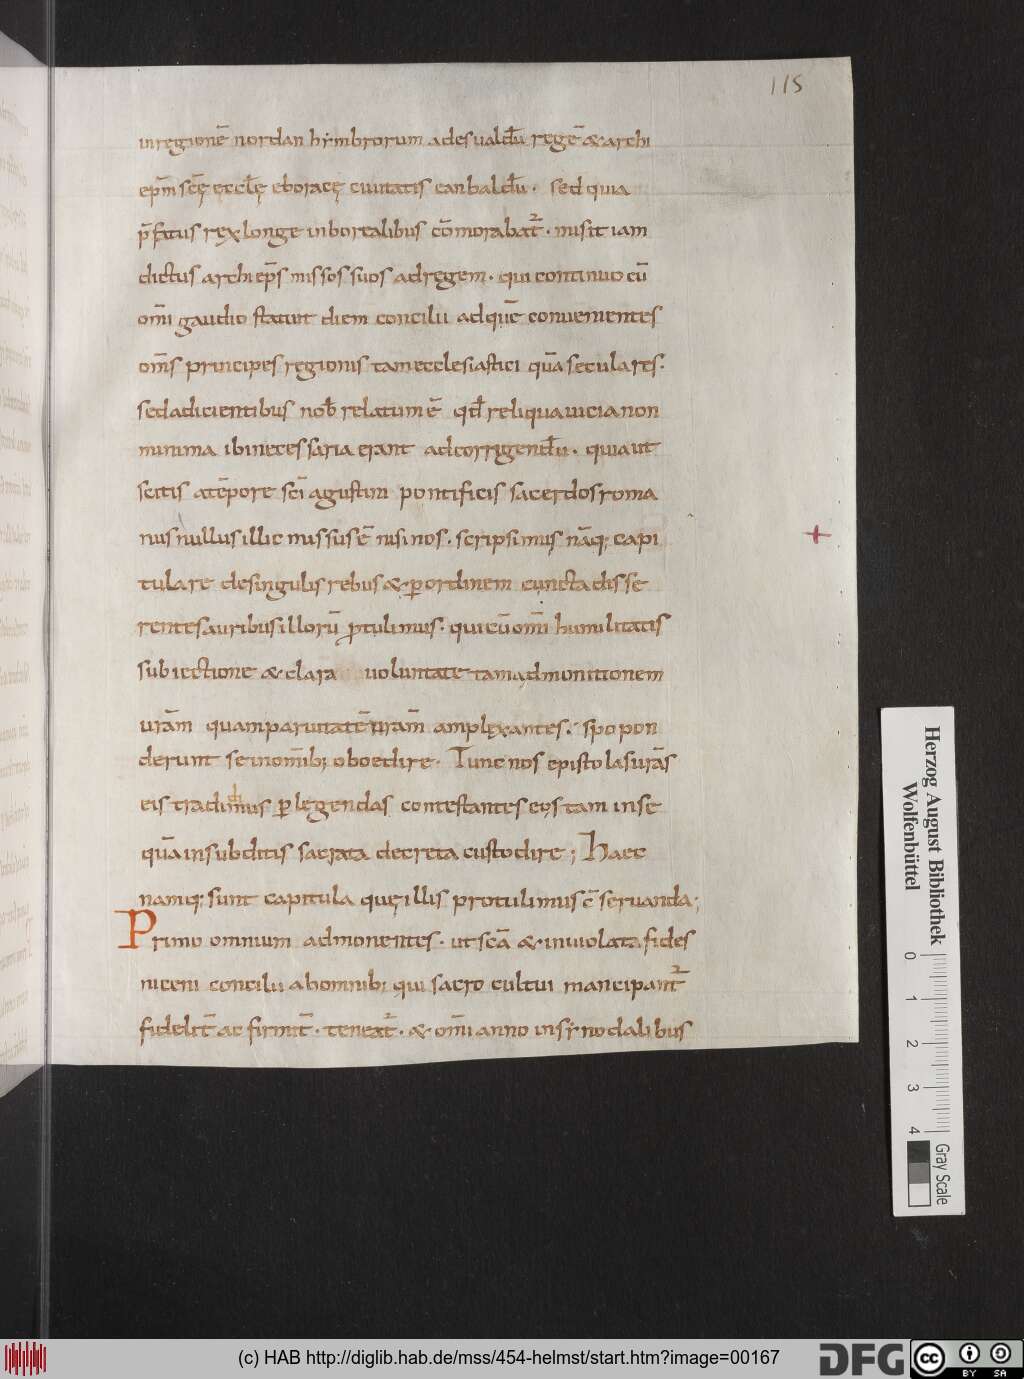 115
in regionē nordan hymbrorum ad esualdū regē & archi
ep̄m sc̄ę eccl̄ę eboracę ciuitatis canbaldū · sed quia
p̄fatus rex longe in borealibus cōmorabat̄ · misit iam
dictus archiep̄s missos suos ad regem · qui continuo cū
om̄i gaudio statuit diem concilii ad quē conuenientes
om̄s principes regionis tam ecclesiastici quā seculares ·
sed adicientibus nob̄ relatum ē qd̄ reliqua uicia non
minima ibi necessaria erant ad corrigendū · quia ut
scitis a tēpore sc̄i agustini pontificis sacerdos roma
nus nullus illic missus ē nisi nos · scripsimus nāq; capi
tulare de singulis rebus & ꝑ ordinem cuncta disse
rentes auribus illorū ꝓtulimus · qui cū om̄i humilitatis
subiectione & clara uoluntate tam admonitionem
urām quam paruitatē nrām amplexantes · spopon
derunt se in omib; oboedire · Tunc nos epistolas urās
eis tradimus ꝑlegendas contestantes eos tam in se
quā in subditis sacrata decreta custodire ; Haec
namq; sunt capitula quę illis protulimus c̄seruanda ;
Primo omnium admonentes · ut sc̄a & inuiolata fides
niceni concilii ab omnib; qui sacro cultui mancipant̄
fidelit̄ ac firmit̄ · teneat̄ · & om̄i anno in synodalibus
Herzog August Bibliothek
Wolfenbüttel
0 1 2 3 4
Gray Scale
(c) HAB http://diglib.hab.de/mss/454-helmst/start.htm?image=00167
DFG
cc BY SA